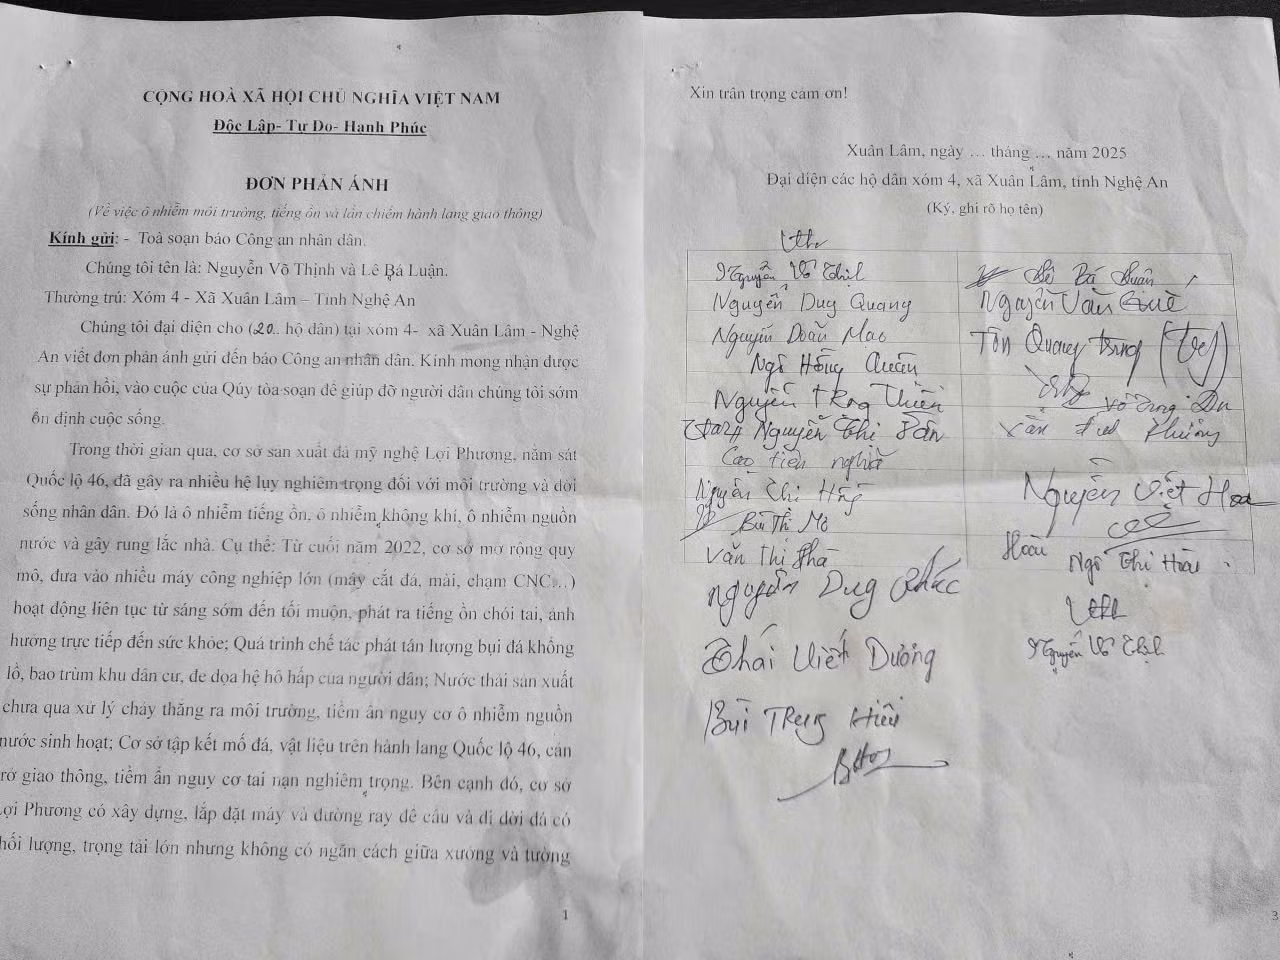 CỘNG HOÀ XÃ HỘI CHỦ NGHĨA VIỆT NAM
Độc Lập- Tự Do- Hạnh Phúc
ĐƠN PHẢN ÁNH
(Về việc ô nhiễm môi trường, tiếng ồn và lấn chiếm hành lang giao thông)
Kính gửi: - Toà soạn báo Công an nhân dân.
Chúng tôi tên là: Nguyễn Võ Thịnh và Lê Bá Luận.
Thường trú: Xóm 4 - Xã Xuân Lâm – Tỉnh Nghệ An
Chúng tôi đại diện cho (20.. hộ dân) tại xóm 4- xã Xuân Lâm - Nghệ
An viết đơn phản ánh gửi đến báo Công an nhân dân. Kính mong nhận được
sự phản hồi, vào cuộc của Qúy tòa soạn để giúp đỡ người dân chúng tôi sớm
ổn định cuộc sống.
Trong thời gian qua, cơ sở sản xuất đá mỹ nghệ Lợi Phương, nằm sát
Quốc lộ 46, đã gây ra nhiều hệ lụy nghiêm trọng đối với môi trường và đời
sống nhân dân. Đó là ô nhiễm tiếng ồn, ô nhiễm không khí, ô nhiễm nguồn
nước và gây rung lắc nhà. Cụ thể: Từ cuối năm 2022, cơ sở mở rộng quy
mô, đưa vào nhiều máy công nghiệp lớn (máy cắt đá, mài, chạm CNC…)
hoạt động liên tục từ sáng sớm đến tối muộn, phát ra tiếng ồn chói tai, ảnh
hưởng trực tiếp đến sức khỏe; Quá trình chế tác phát tán lượng bụi đá khổng
lồ, bao trùm khu dân cư, đe dọa hệ hô hấp của người dân; Nước thải sản xuất
chưa qua xử lý chảy thẳng ra môi trường, tiềm ẩn nguy cơ ô nhiễm nguồn
nước sinh hoạt; Cơ sở tập kết mố đá, vật liệu trên hành lang Quốc lộ 46, cản
trở giao thông, tiềm ẩn nguy cơ tai nạn nghiêm trọng. Bên cạnh đó, cơ sở
Lợi Phương có xây dựng, lắp đặt máy và đường ray để cẩu và di dời đá có
khối lượng, trọng tải lớn nhưng không có ngăn cách giữa xưởng và tường
1
Xin trân trọng cảm ơn!
Xuân Lâm, ngày … tháng … năm 2025
Đại diện các hộ dân xóm 4, xã Xuân Lâm, tỉnh Nghệ An
(Ký, ghi rõ họ tên)
Nguyễn Võ Thịnh Lê Bá Luận
Nguyễn Duy Quang Nguyễn Văn Quê
Nguyễn Doãn Mao Tôn Quang Trung
Ngô Hồng Quân
Nguyễn Trọng Thiên
Nguyễn Thị Võ Trung
Cao tiến nghĩa Văn Phương
Nguyễn Thị Hồng Nguyễn Viết Hoa
Bùi Thị Mỏ
Văn Thị Hoài Ngô Thị Hoài
Nguyễn Duy
Thái Viết Dương Nguyễn Võ Thịnh
Bùi Trọng Hiếu
3